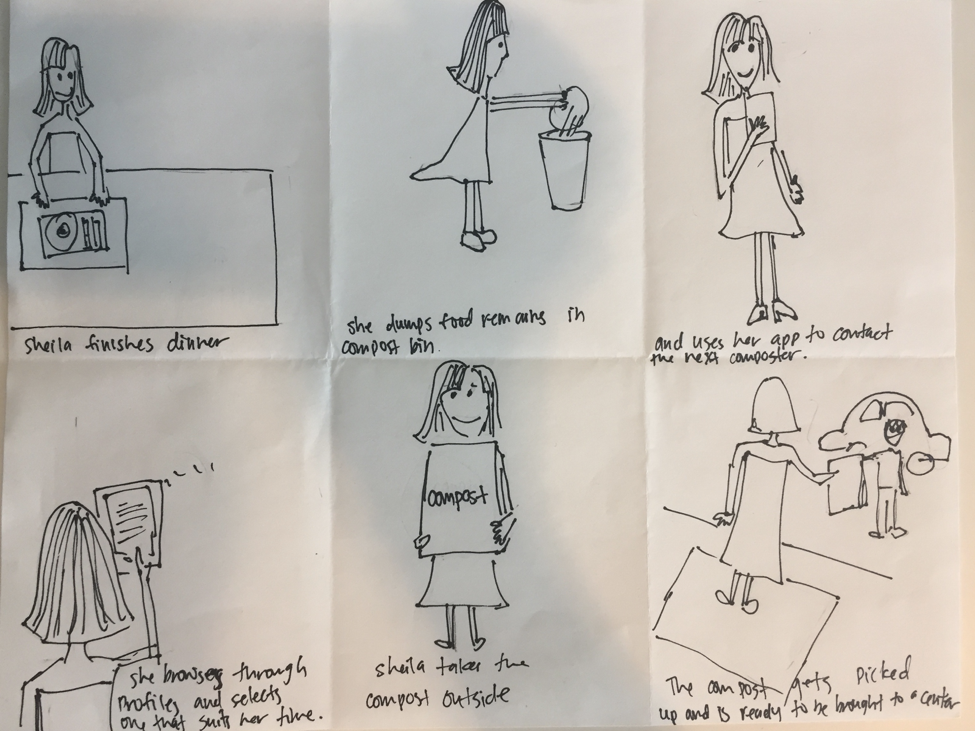 sheila finishes dinner
she dumps food remains in
compost bin.
and uses her app to contact
the next composter.
she browses through
profiles and selects
one that suits her time.
compost
sheila takes the
compost outside
The compost gets picked
up and is ready to be brought to a "center